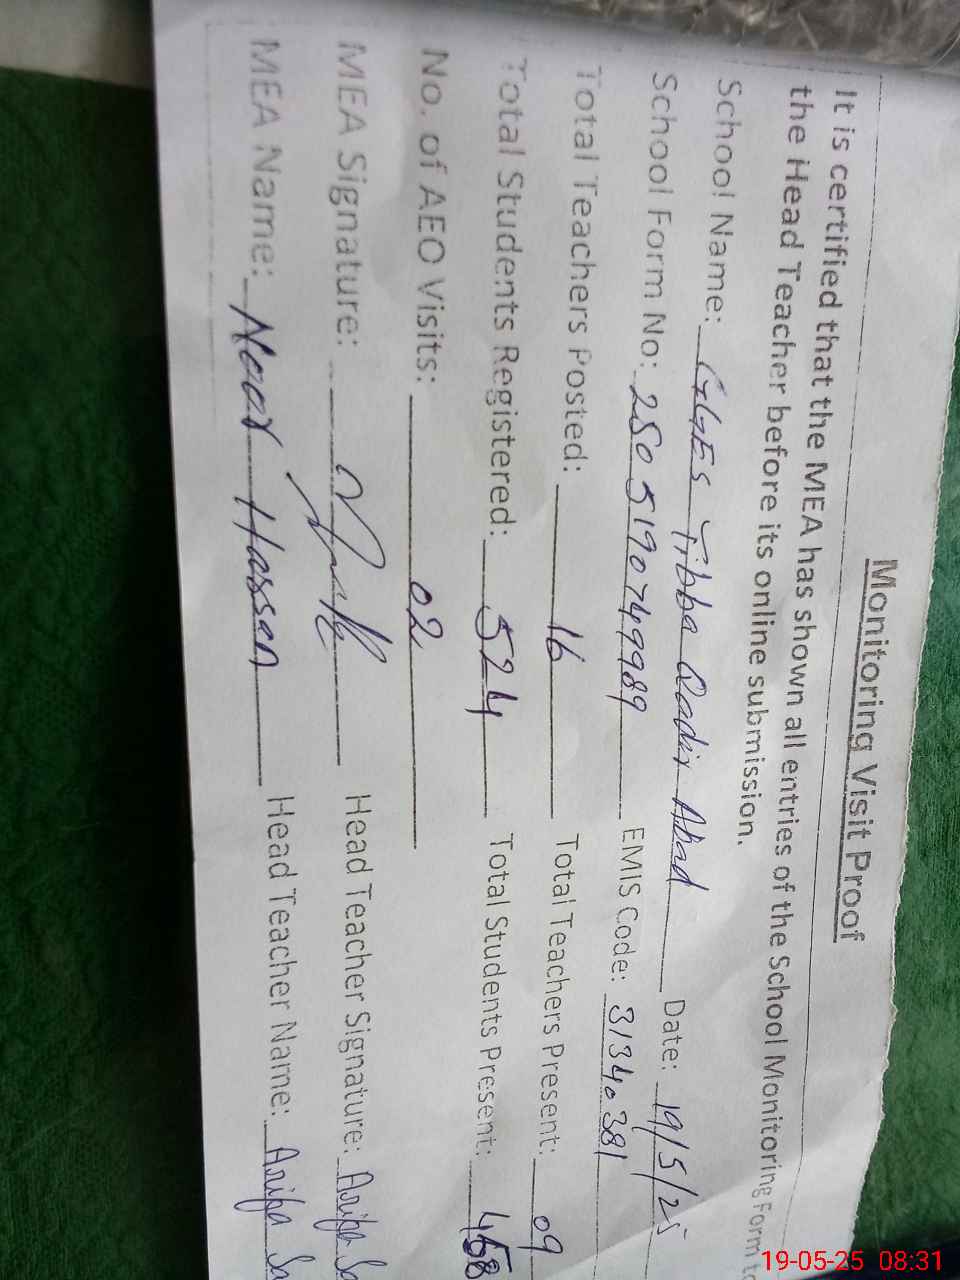 Monitoring Visit Proof
It is certified that the MEA has shown all entries of the School Monitoring Form to
the Head Teacher before its online submission.
School Name: GGES Tibba Qadir Abad Date: 19/5/25
School Form No: 2505190749989 EMIS Code: 31340381
Total Teachers Posted: 16 Total Teachers Present: 09
Total Students Registered: 524 Total Students Present: 458
No. of AEO Visits: 02
MEA Signature: Head Teacher Signature: Arifa Sa
MEA Name: Noor Hassan Head Teacher Name: Arifa Sa
19-05-25 08:31